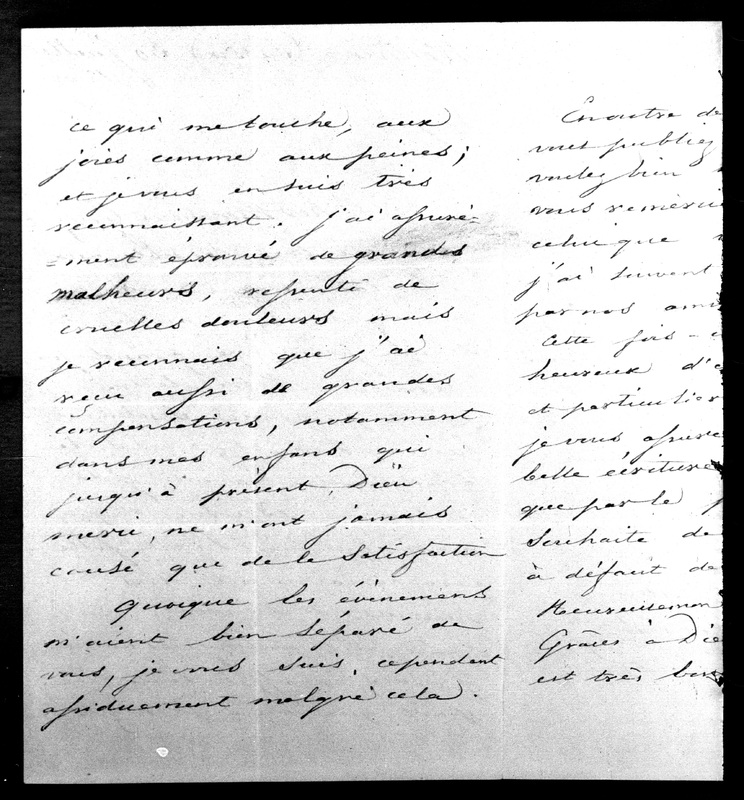 ce qui me touche, aux
joies comme aux peines;
et je vous en suis très
reconnaissant. J'ai assuré-
=ment éprouvé de grandes
malheurs, ressenti de
cruelles douleurs mais
je reconnais que j'ai
reçu aussi de grandes
compensations, notamment
dans mes enfans qui
jusqu'à présent, Dieu
merci, ne m'ont jamais
causé que de la satisfaction
Quoique les évènemens
m'aient bien séparé de
vous, je vous suis cependant
assiduement malgré cela.
En outre de
vous publiez
voulez bien
vous remercie
celui que
j'ai souvent
par nos amis
Cette fois-
heureux d'
et particulier
je vous assure
belle écriture
que par le
souhaite de
à défaut de
Heureusemen
Grâces à Die
est très bon